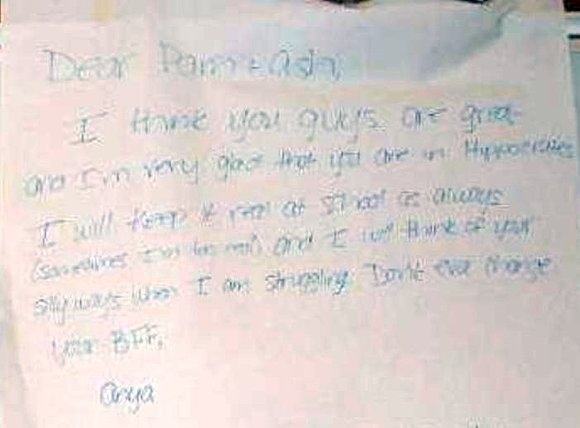 Dear Pam + Ash,
I think you guys are great
and I'm very glad that you are in Hippocrates
I will keep it real at school as always
(sometimes I'm too real) and I will think of your
silly ways when I am struggling. Don't ever change
your BFF,
Arya